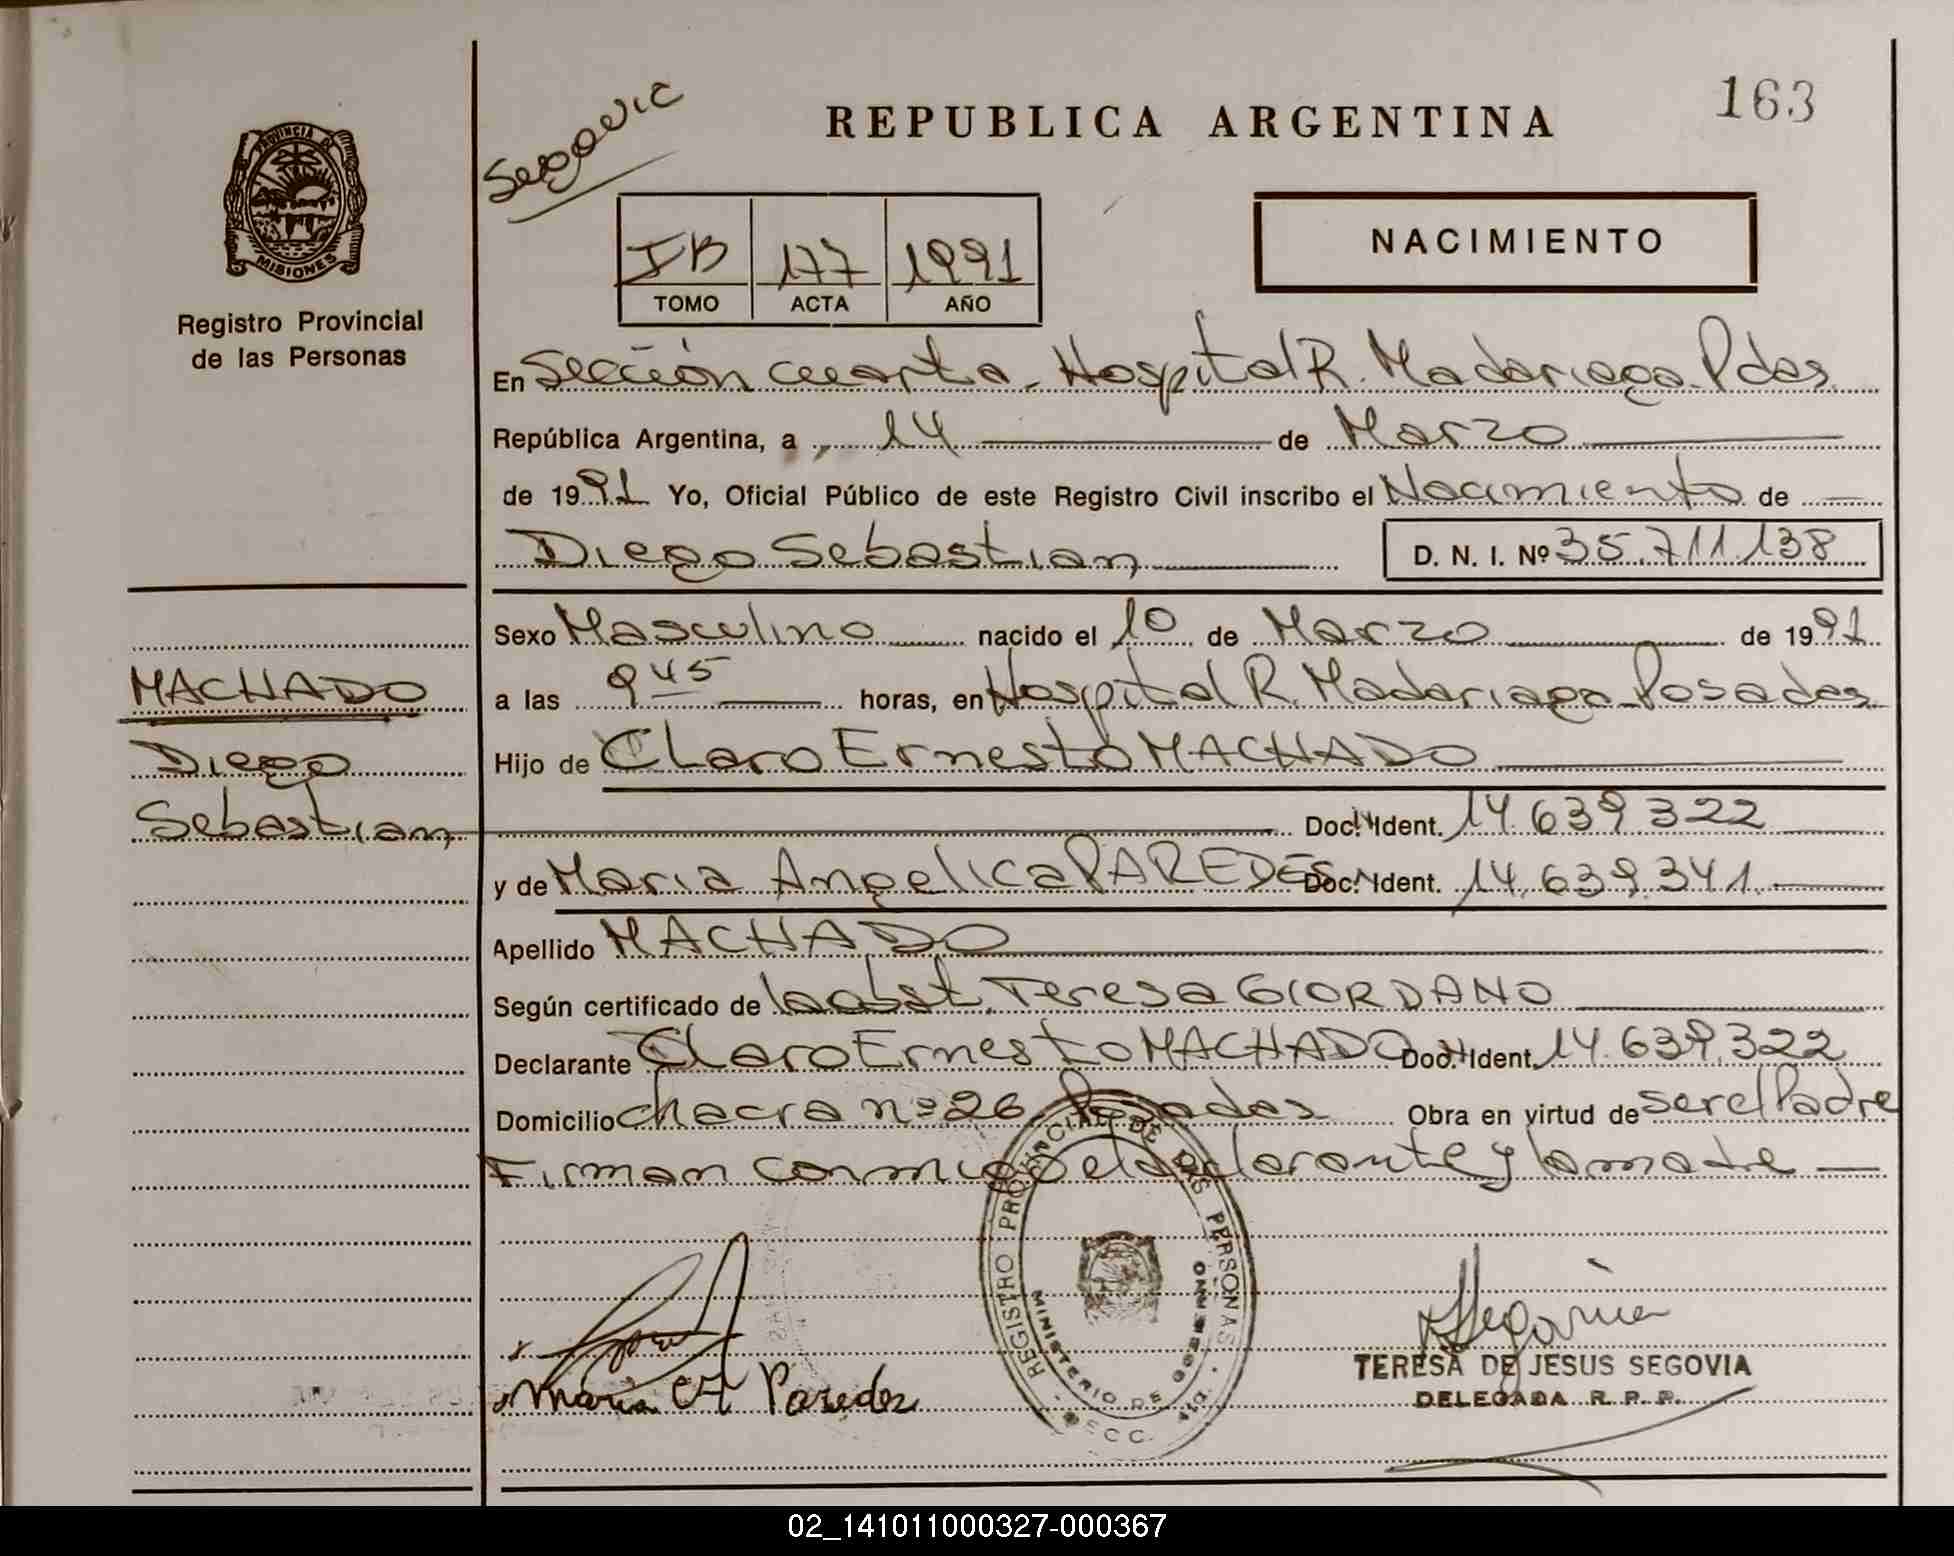 163
Segovia
REPUBLICA ARGENTINA
PROVINCIA DE
MISIONES
Registro Provincial
de las Personas
IB 177 1991
TOMO ACTA AÑO
NACIMIENTO
En Sección cuarta - Hospital R. Madariaga - Pdas.
República Argentina, a 14 de Marzo
de 1991 Yo, Oficial Público de este Registro Civil inscribo el Nacimiento de
Diego Sebastian D. N. I. Nº 35.711.138
Sexo Masculino nacido el 10 de Marzo de 1991
a las 9 45 horas, en Hospital R. Madariaga - Posadas
Hijo de Claro Ernesto MACHADO
Doc. Ident. 14.639.322
y de Maria Angelica PAREDES Doc. Ident. 14.639.341
Apellido MACHADO
Según certificado de la obst. Teresa GIORDANO
Declarante Claro Ernesto MACHADO Doc. Ident. 14.639.322
Domicilio chacra nº 26 Posadas Obra en virtud de ser el Padre
Firman conmigo el declarante y la madre
MACHADO
Diego
Sebastian
REGISTRO PROVINCIAL DE LAS PERSONAS
MINISTERIO DE GOBIERNO
Maria A Paredes
Segovia
TERESA DE JESUS SEGOVIA
DELEGADA R. P. P.
02_141011000327-000367